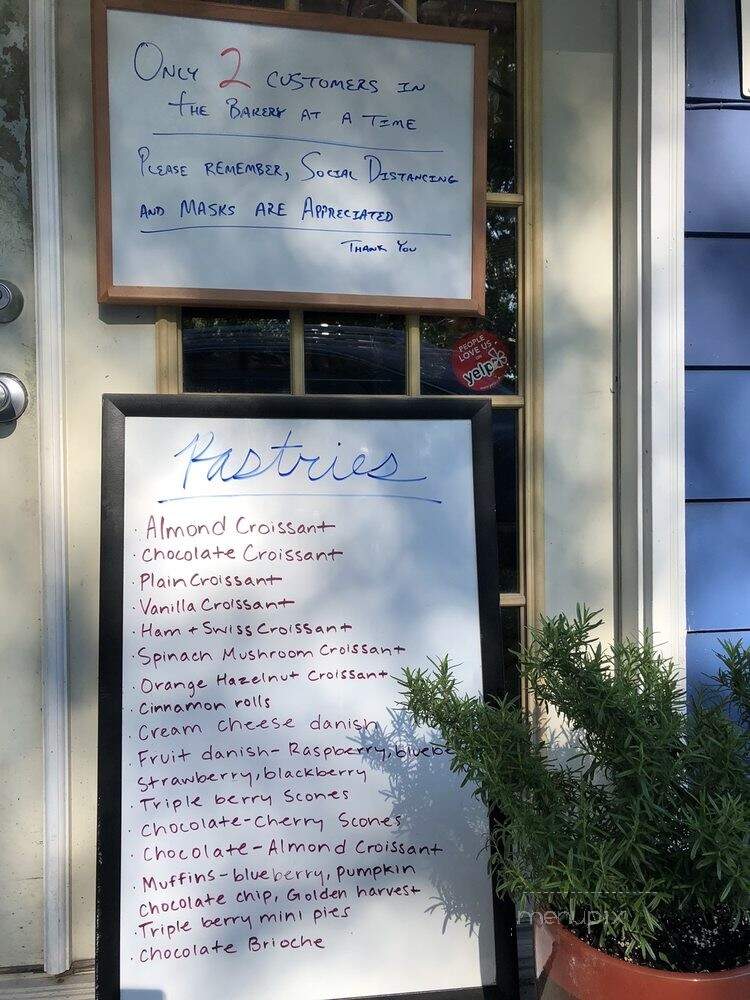 ONLY 2 CUSTOMERS IN
THE BAKERY AT A TIME
PLEASE REMEMBER, SOCIAL DISTANCING
AND MASKS ARE APPRECIATED
THANK YOU
PEOPLE
LOVE US
ON
yelp
Pastries
· Almond Croissant
· Chocolate Croissant
· Plain Croissant
· Vanilla Croissant
· Ham + Swiss Croissant
· Spinach Mushroom Croissant
· Orange Hazelnut Croissant
· Cinnamon rolls
· Cream cheese danish
· Fruit danish - Raspberry,
Strawberry, blackberry
· Triple berry Scones
· Chocolate-Cherry Scones
· Chocolate-Almond Croissant
· Muffins - blueberry, pumpkin
Chocolate chip, Golden harvest
· Triple berry mini pies
· Chocolate Brioche
menupix